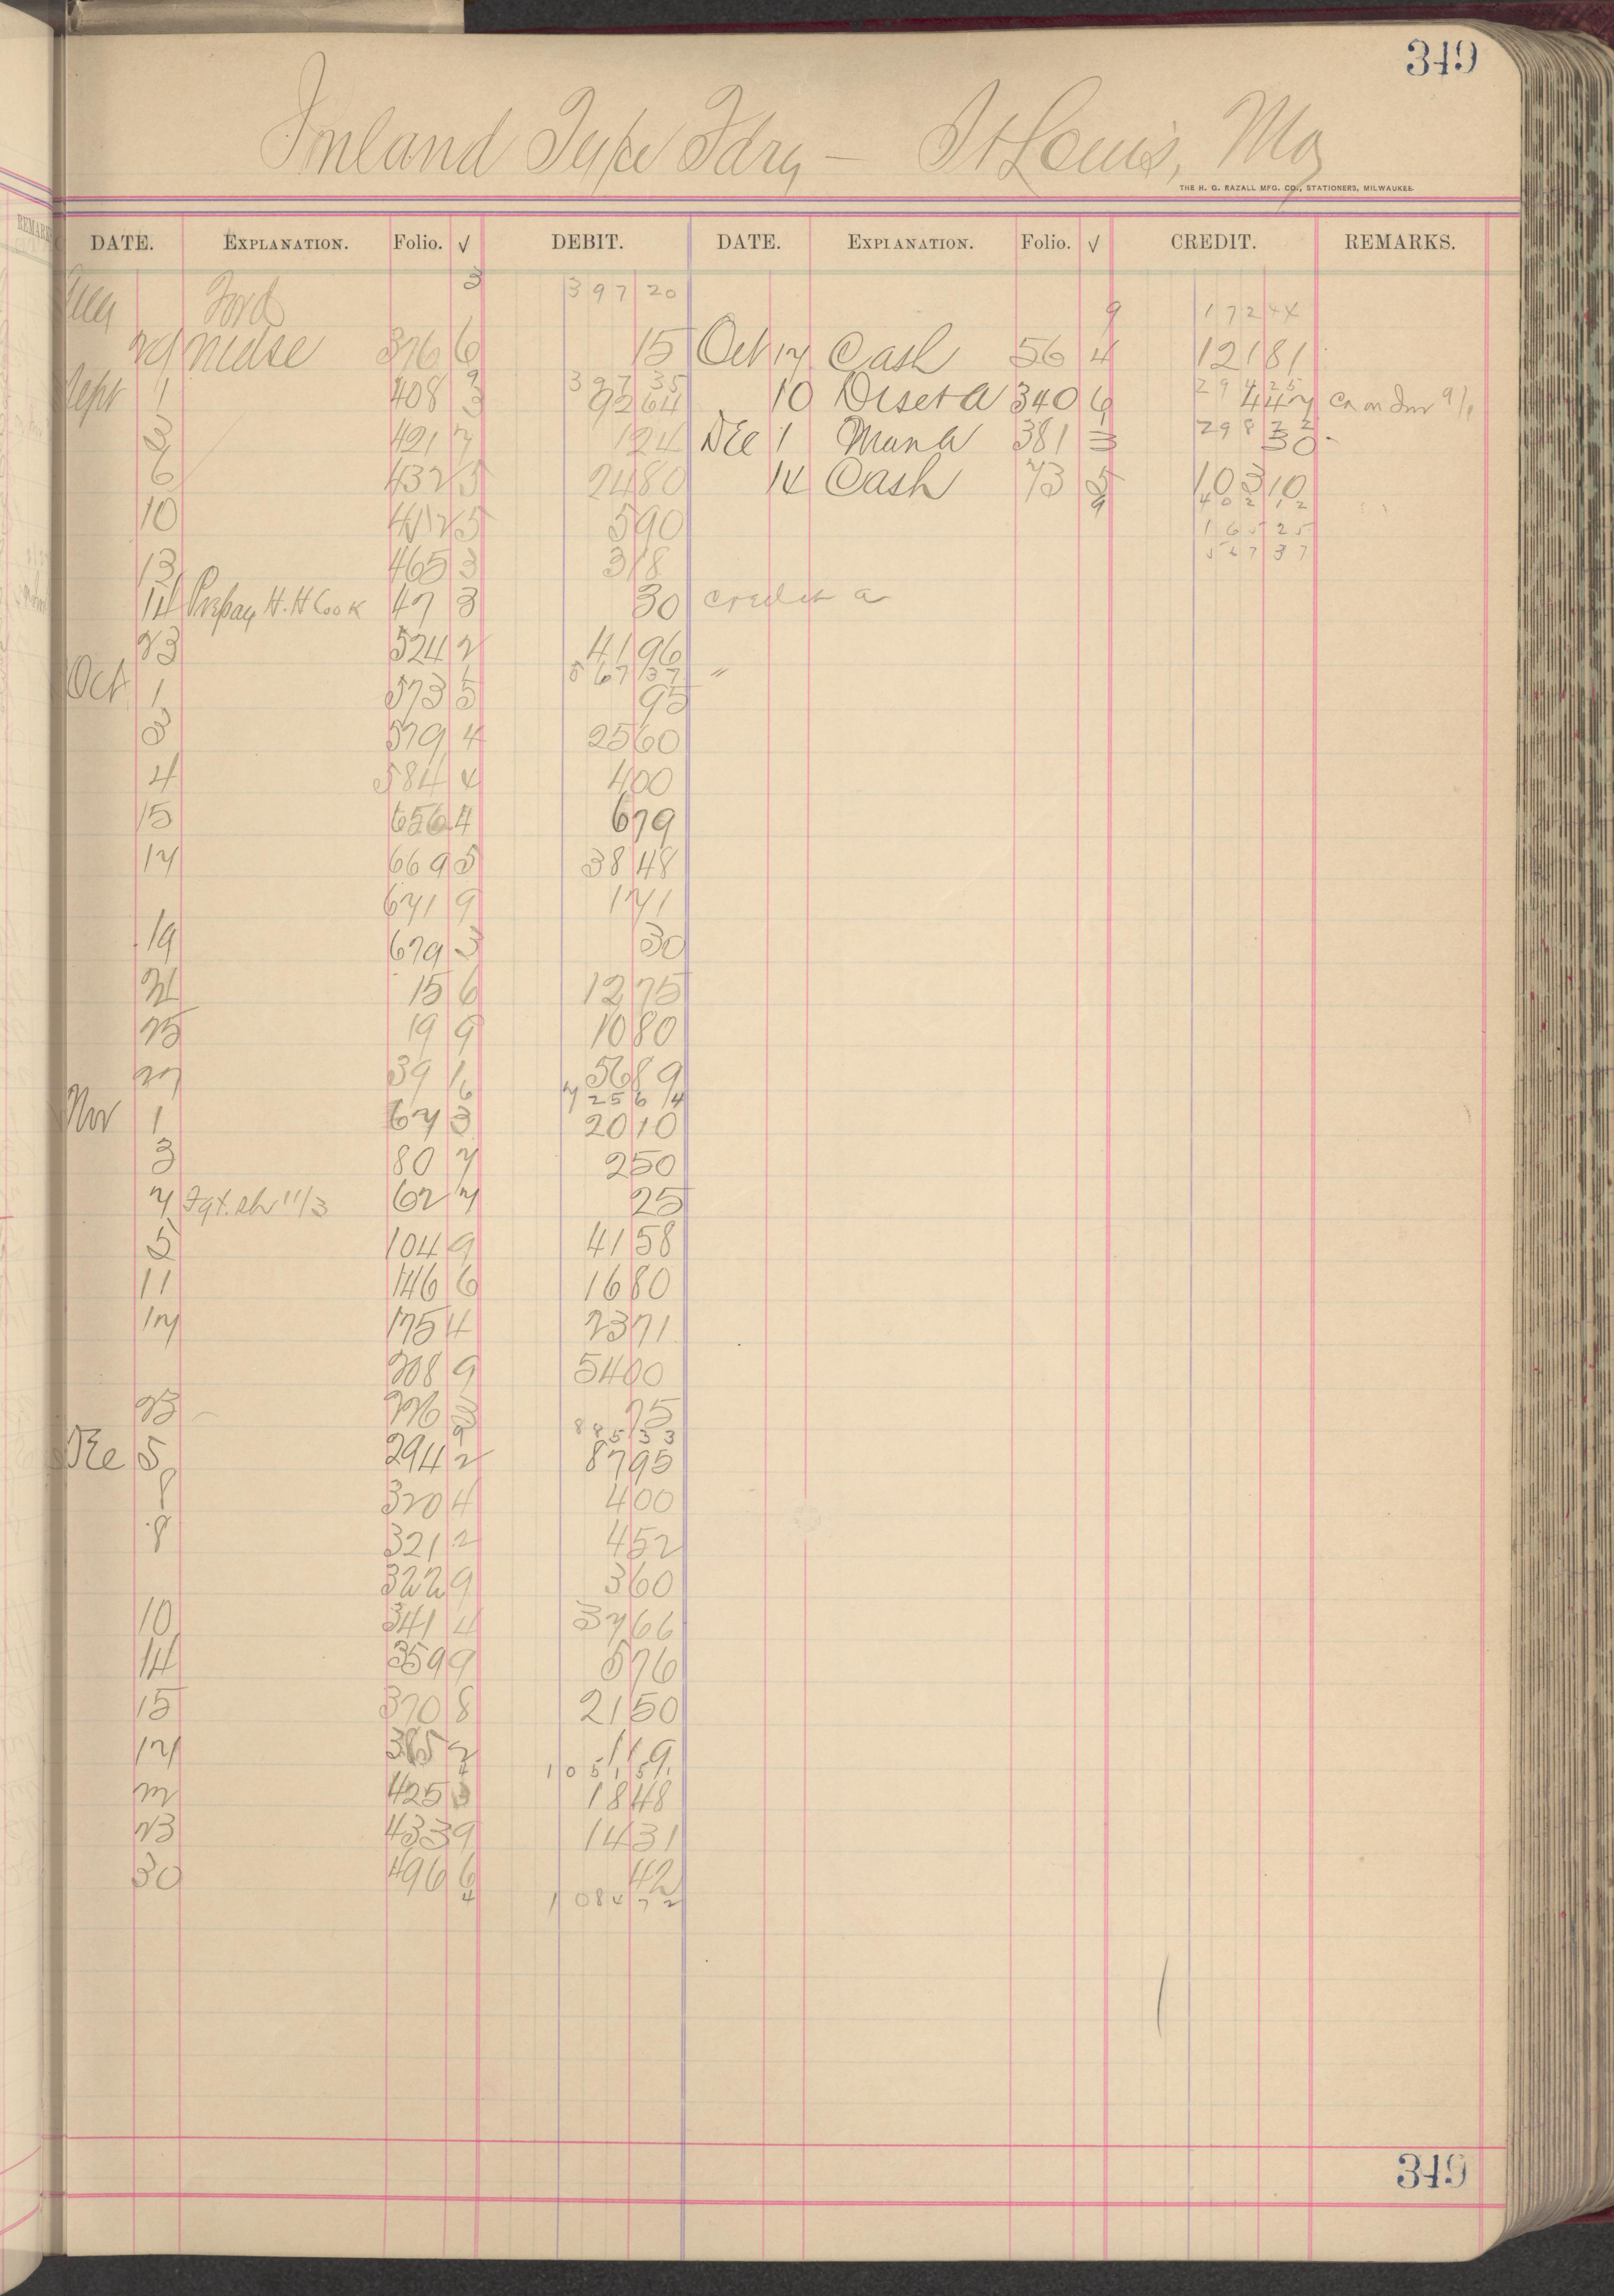 349
Inland Type Fdry — St Louis, Mo
THE H. G. RAZALL MFG. CO., STATIONERS, MILWAUKEE
DATE. EXPLANATION. Folio. √ DEBIT. DATE. EXPLANATION. Folio. √ CREDIT. REMARKS.
Aug Ford 3 397 20 9 172 44
29 Mdse 376 6 15 Oct 17 Cash 56 4 121 81
397 35
Sept 1 408 3 92 64 10 Disct a 340 6 4 47
294 25
3 421 7 1 24 Dec 1 Mdna 381 3 30
298 72
6 432 5 24 80 14 Cash 73 5 103 10
402 12
10 5 5 90 165 25
13 465 3 3 18 567 37
14 Prepay H. H Cook 47 3 30 credit a
23 524 2 41 96
567 37 "
Oct 1 573 5 95
3 579 4 25 60
4 584 4 4 00
15 656 4 6 79
17 669 5 38 48
671 9 1 71
19 679 3 30
21 15 6 12 75
25 19 9 10 80
27 39 1 56 89
725 64
Nov 1 67 3 20 10
3 80 7 2 50
7 Fgt. 11/3 62 7 25
5 104 9 41 58
11 146 6 16 80
17 175 4 23 71
208 9 54 00
23 226 3 75
885 33
Dec 5 294 2 87 95
8 320 4 4 00
8 321 2 4 52
322 9 3 60
10 341 4 37 66
14 359 9 5 76
15 370 8 21 50
17 365 2 1 19
1051 51
22 425 3 18 48
23 433 9 14 31
30 496 6 42
1084 72
349